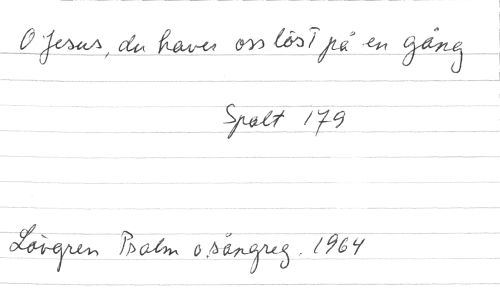 O Jesus, du haver oss löst på en gång
Spalt 179
Lövgren Psalm o. sångreg. 1964